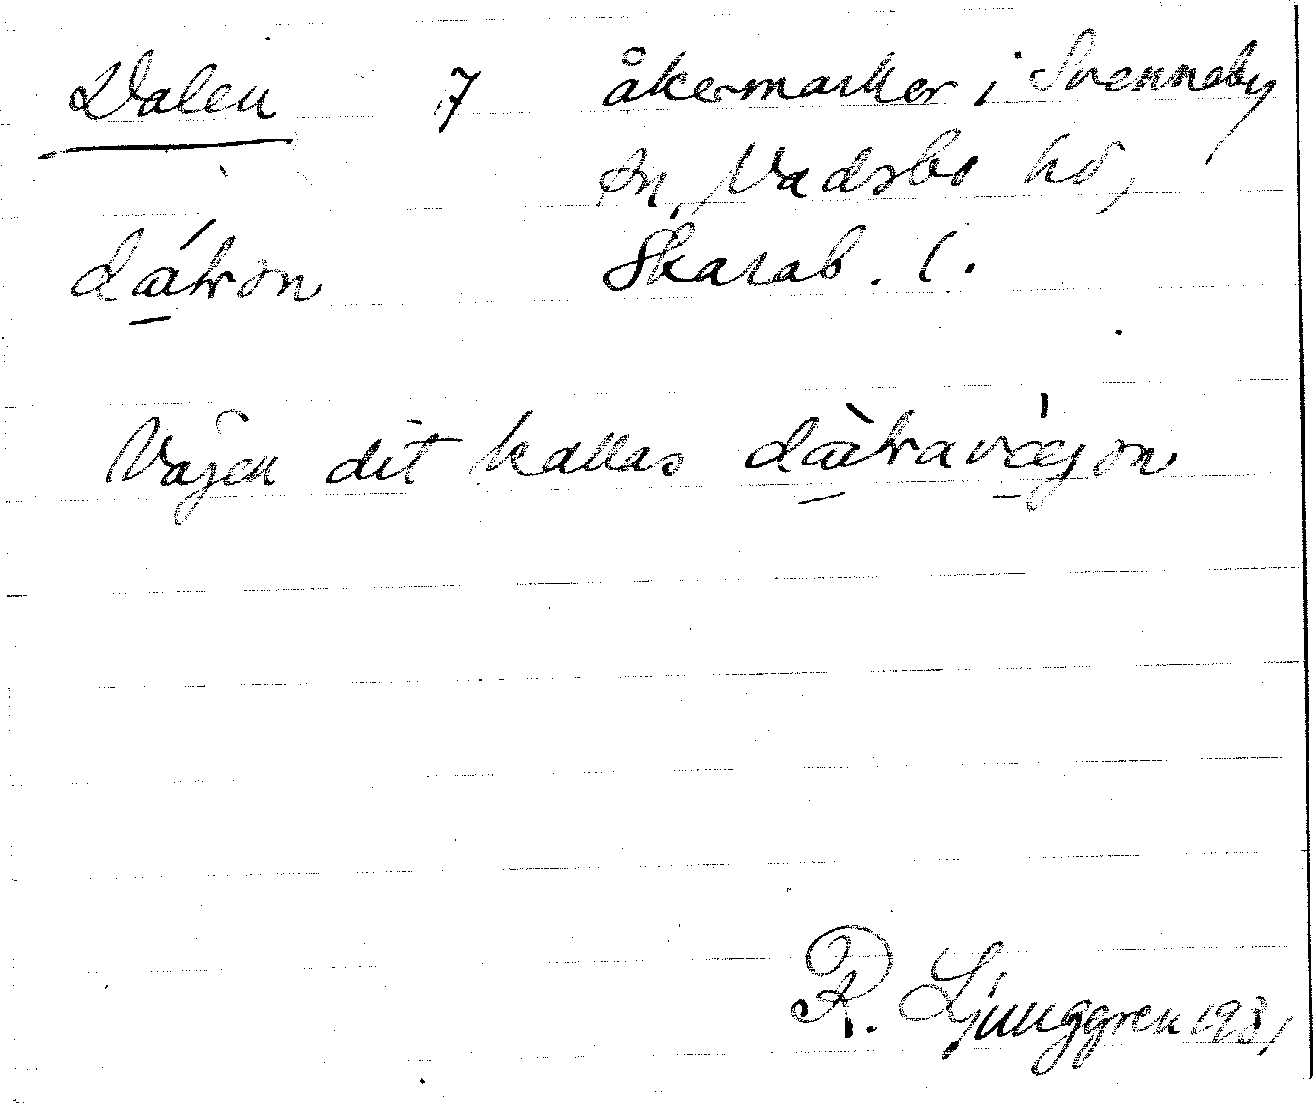 Dalen 7 åkermarker i Svenneby
sn, Vadsbo hd,
dáʹran Skarab. l.
Vägen dit kallas
R. Ljunggren 1931